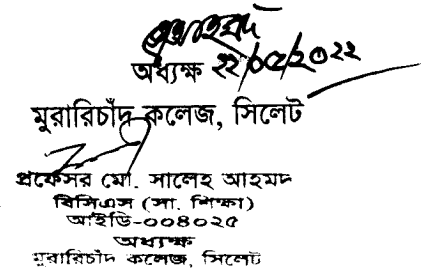 অধ্যক্ষ ২২/০৫/২০২২
মুরারিচাঁদ কলেজ, সিলেট
প্রফেসর মো. সালেহ আহমদ
বিসিএস (সা. শিক্ষা)
আইডি-০০৪০২৫
অধ্যক্ষ
মুরারিচাঁদ কলেজ, সিলেট